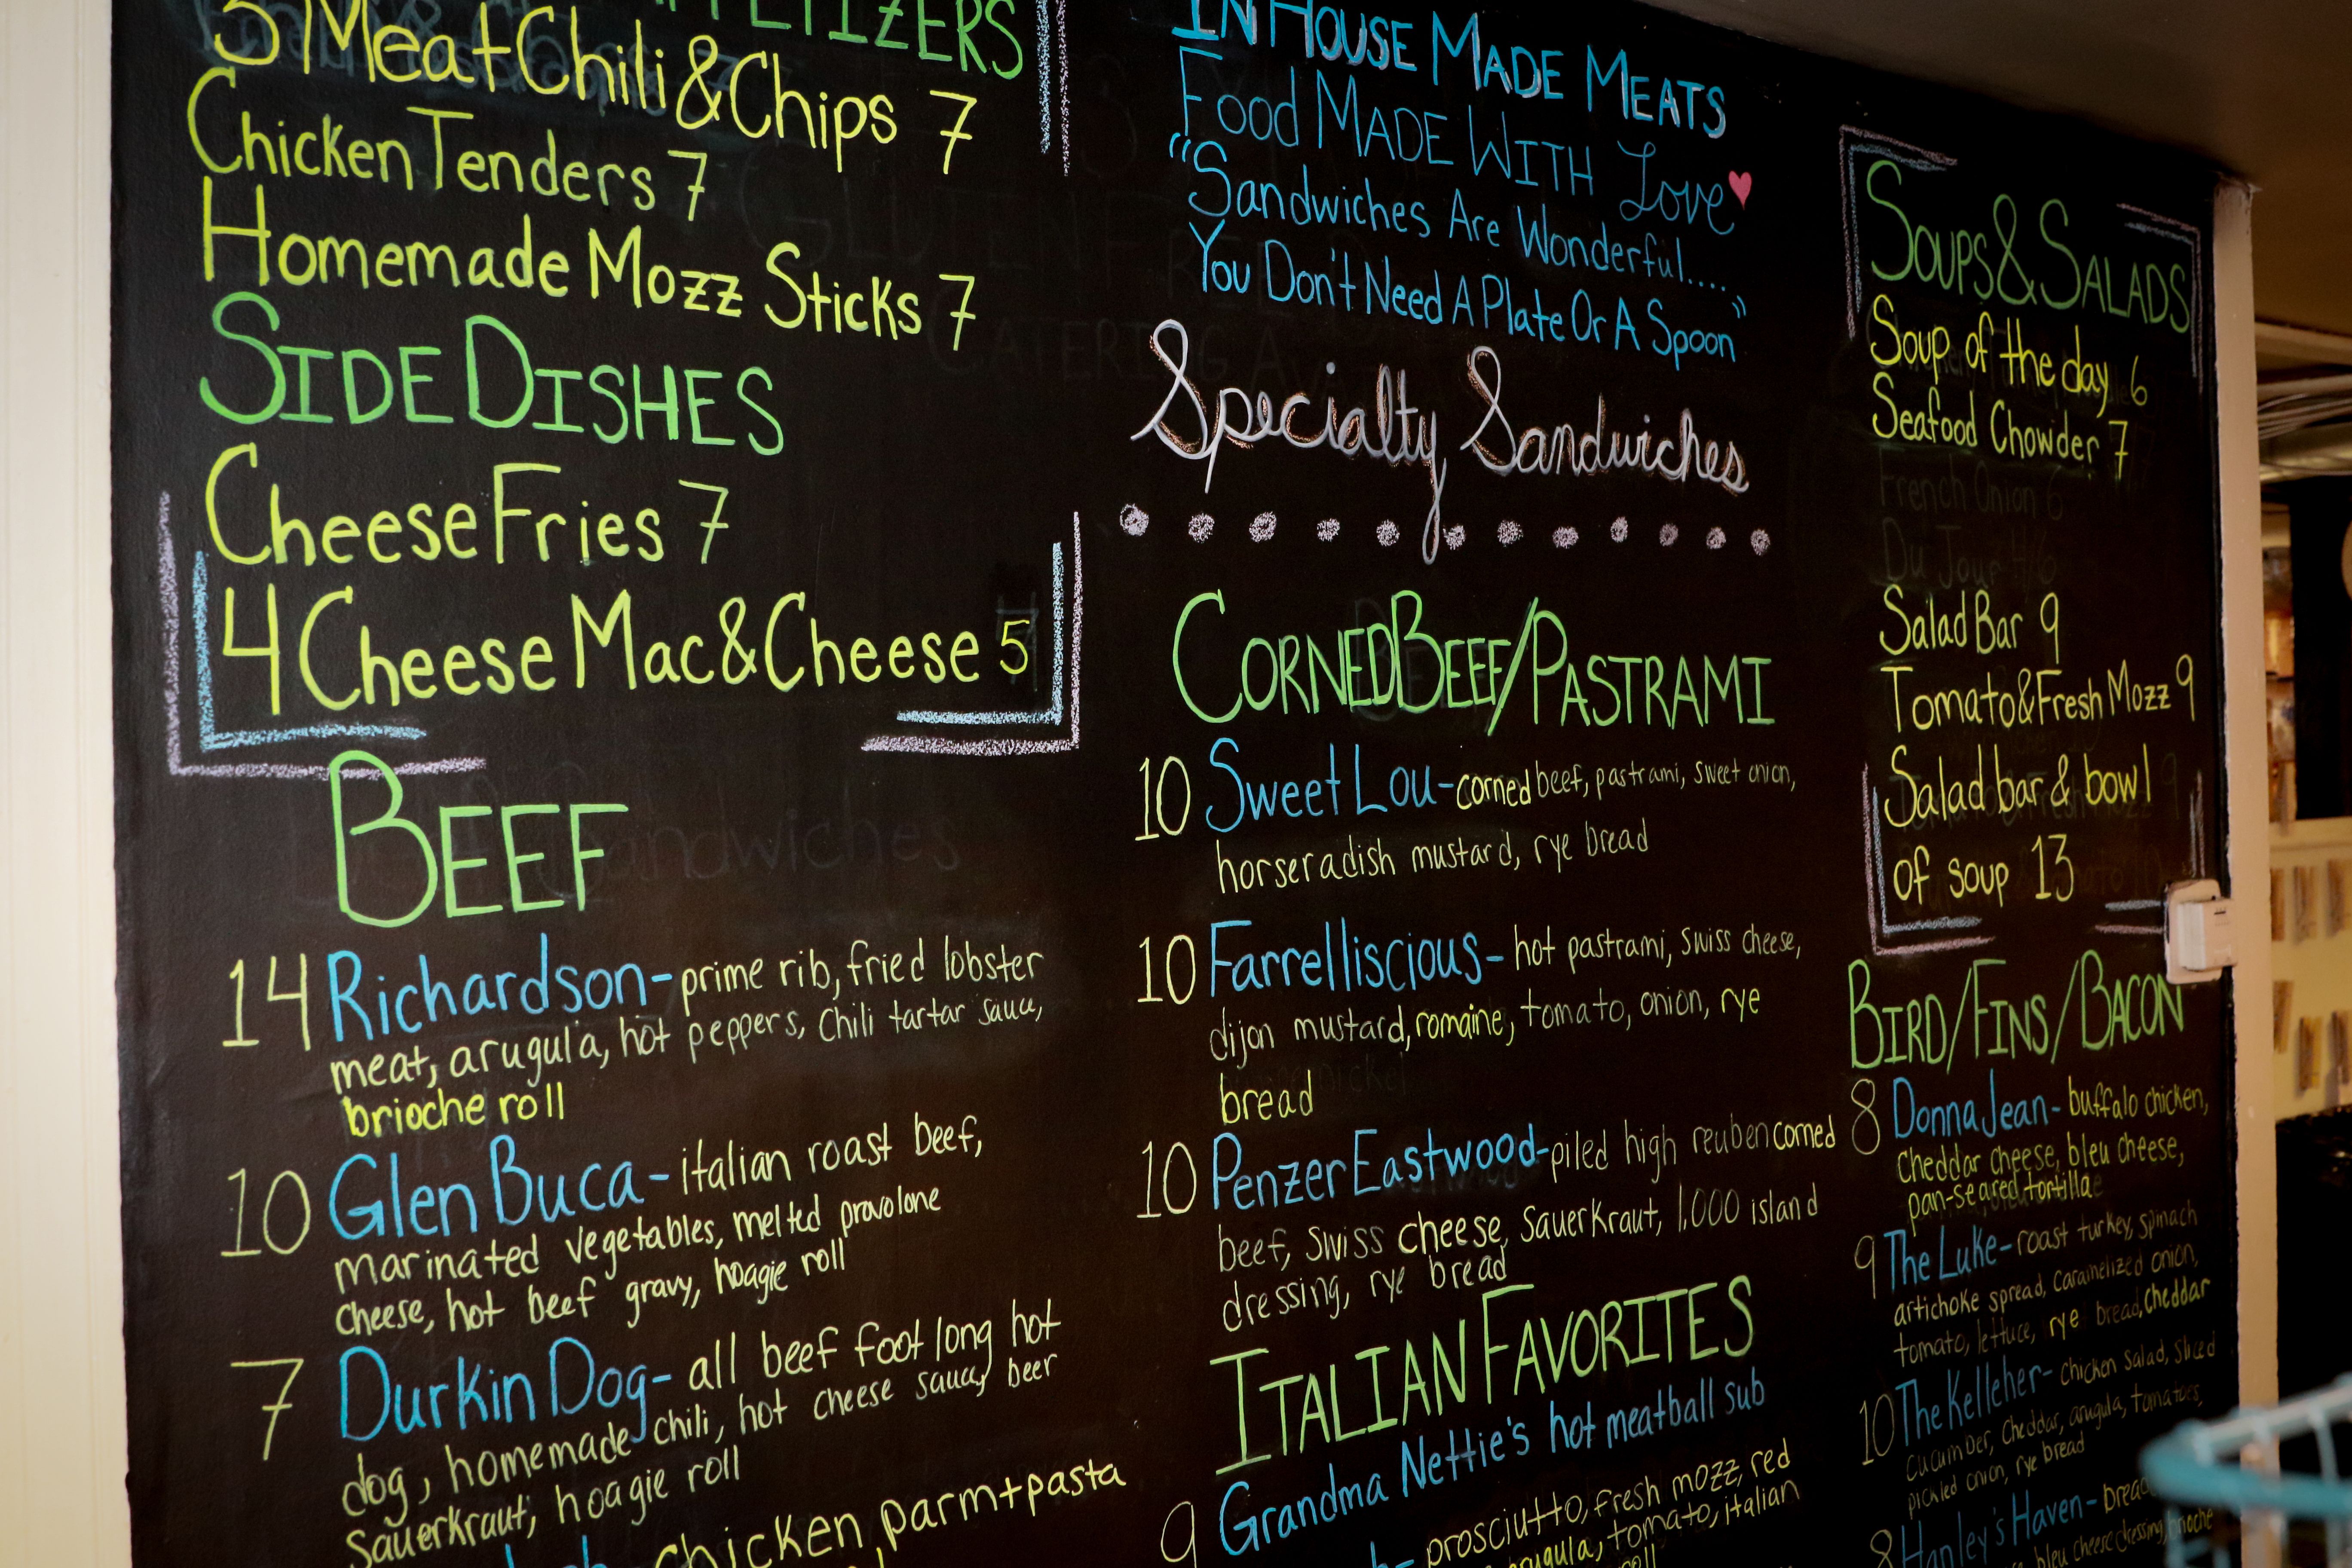 3 Meat Chili & Chips 7
Chicken Tenders 7
Homemade Mozz Sticks 7
SIDE DISHES
Cheese Fries 7
4 Cheese Mac & Cheese 5
BEEF
14 Richardson - prime rib, fried lobster
meat, arugula, hot peppers, chili tartar sauce,
brioche roll
10 Glen Buca - italian roast beef,
marinated vegetables, melted provolone
cheese, hot beef gravy, hoagie roll
7 Durkin Dog - all beef foot long hot
dog, homemade chili, hot cheese sauce, beer
sauerkraut, hoagie roll
chicken parm + pasta
IN HOUSE MADE MEATS
Food MADE WITH Love
"Sandwiches Are Wonderful....
You Don't Need A Plate Or A Spoon"
Specialty Sandwiches
CORNED BEEF/PASTRAMI
10 Sweet Lou - corned beef, pastrami, sweet onion,
horseradish mustard, rye bread
10 Farrelliscious - hot pastrami, swiss cheese,
dijon mustard, romaine, tomato, onion, rye
bread
10 Penzer Eastwood - piled high reuben corned
beef, swiss cheese, sauerkraut, 1,000 island
dressing, rye bread
ITALIAN FAVORITES
9 Grandma Nettie's hot meatball sub
prosciutto, fresh mozz, red
arugula, tomato, italian
SOUPS & SALADS
Soup of the day 6
Seafood Chowder 7
French Onion 6
Du Jour
Salad Bar 9
Tomato & Fresh Mozz 9
Salad bar & bowl
of soup 13
BIRD/FINS/BACON
8 Donna Jean - buffalo chicken,
cheddar cheese, bleu cheese,
pan-seared tortilla
9 The Luke - roast turkey, spinach
artichoke spread, caramelized onion,
tomato, lettuce, rye bread, cheddar
10 The Kelleher - chicken salad, sliced
cucumber, cheddar, arugula, tomatoes,
pickled onion, rye bread
8 Hanley's Haven -
bleu cheese dressing, brioche